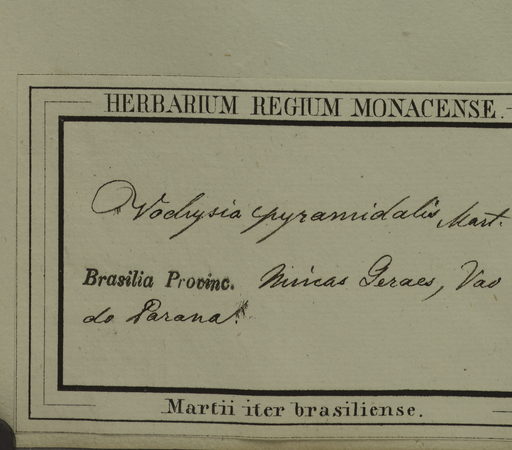 HERBARIUM REGIUM MONACENSE.
Vochysia pyramidalis Mart.
Brasilia Provinc. Minas Geraes, Vao
do Parana.
Martii iter brasiliense.